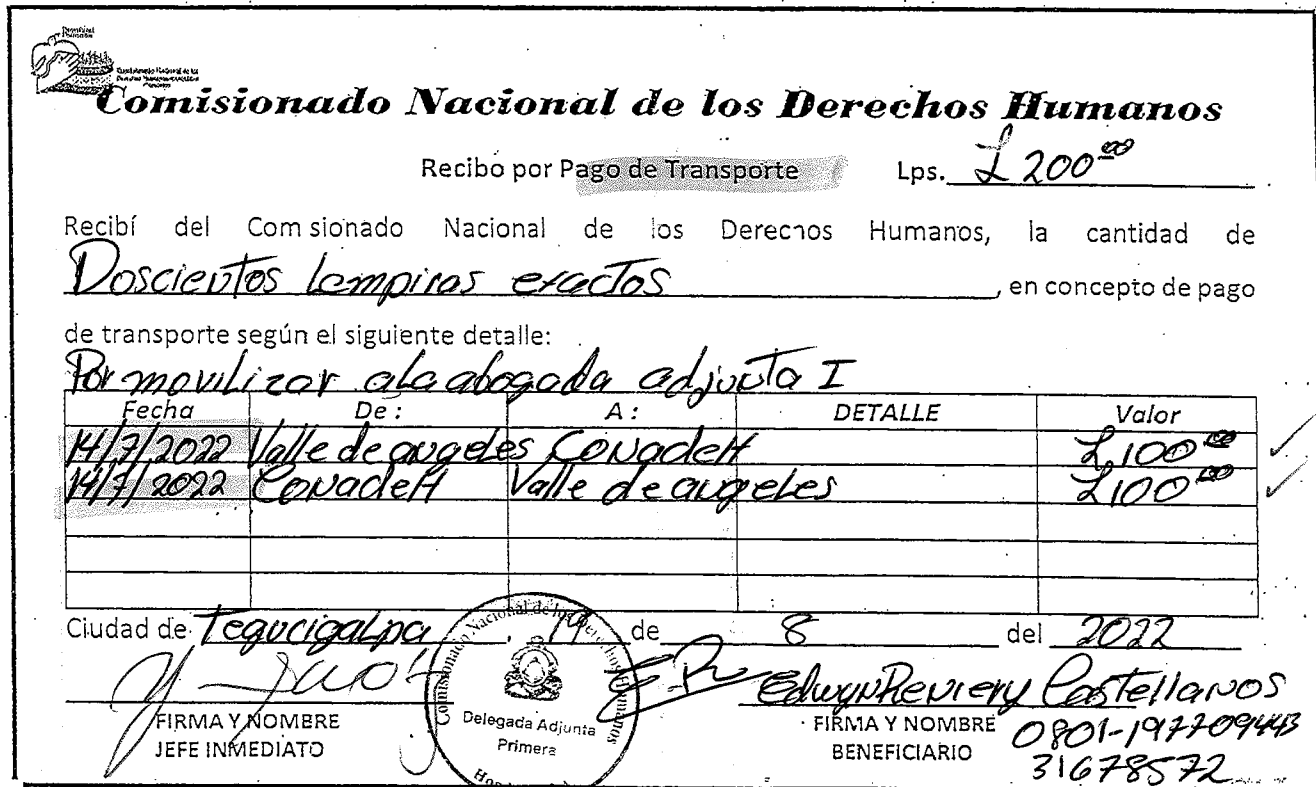 Comisionado Nacional de los Derechos Humanos
Recibo por Pago de Transporte Lps. L 200.00
Recibí del Comisionado Nacional de los Derechos Humanos, la cantidad de
Doscientos lempiras exactos, en concepto de pago
de transporte según el siguiente detalle:
Por movilizar a la abogada adjunta I
Fecha De: A: DETALLE Valor
14/7/2022 Valle de angeles CONADEH L100.00
14/7/2022 CONADEH Valle de angeles L100.00
Ciudad de Tegucigalpa, 19 de 8 del 2022
Edwyn Reniery Castellanos
FIRMA Y NOMBRE
JEFE INMEDIATO
Comisionado Nacional de los Derechos Humanos
Delegada Adjunta
Primera
FIRMA Y NOMBRE
BENEFICIARIO
0801-197709443
31678572